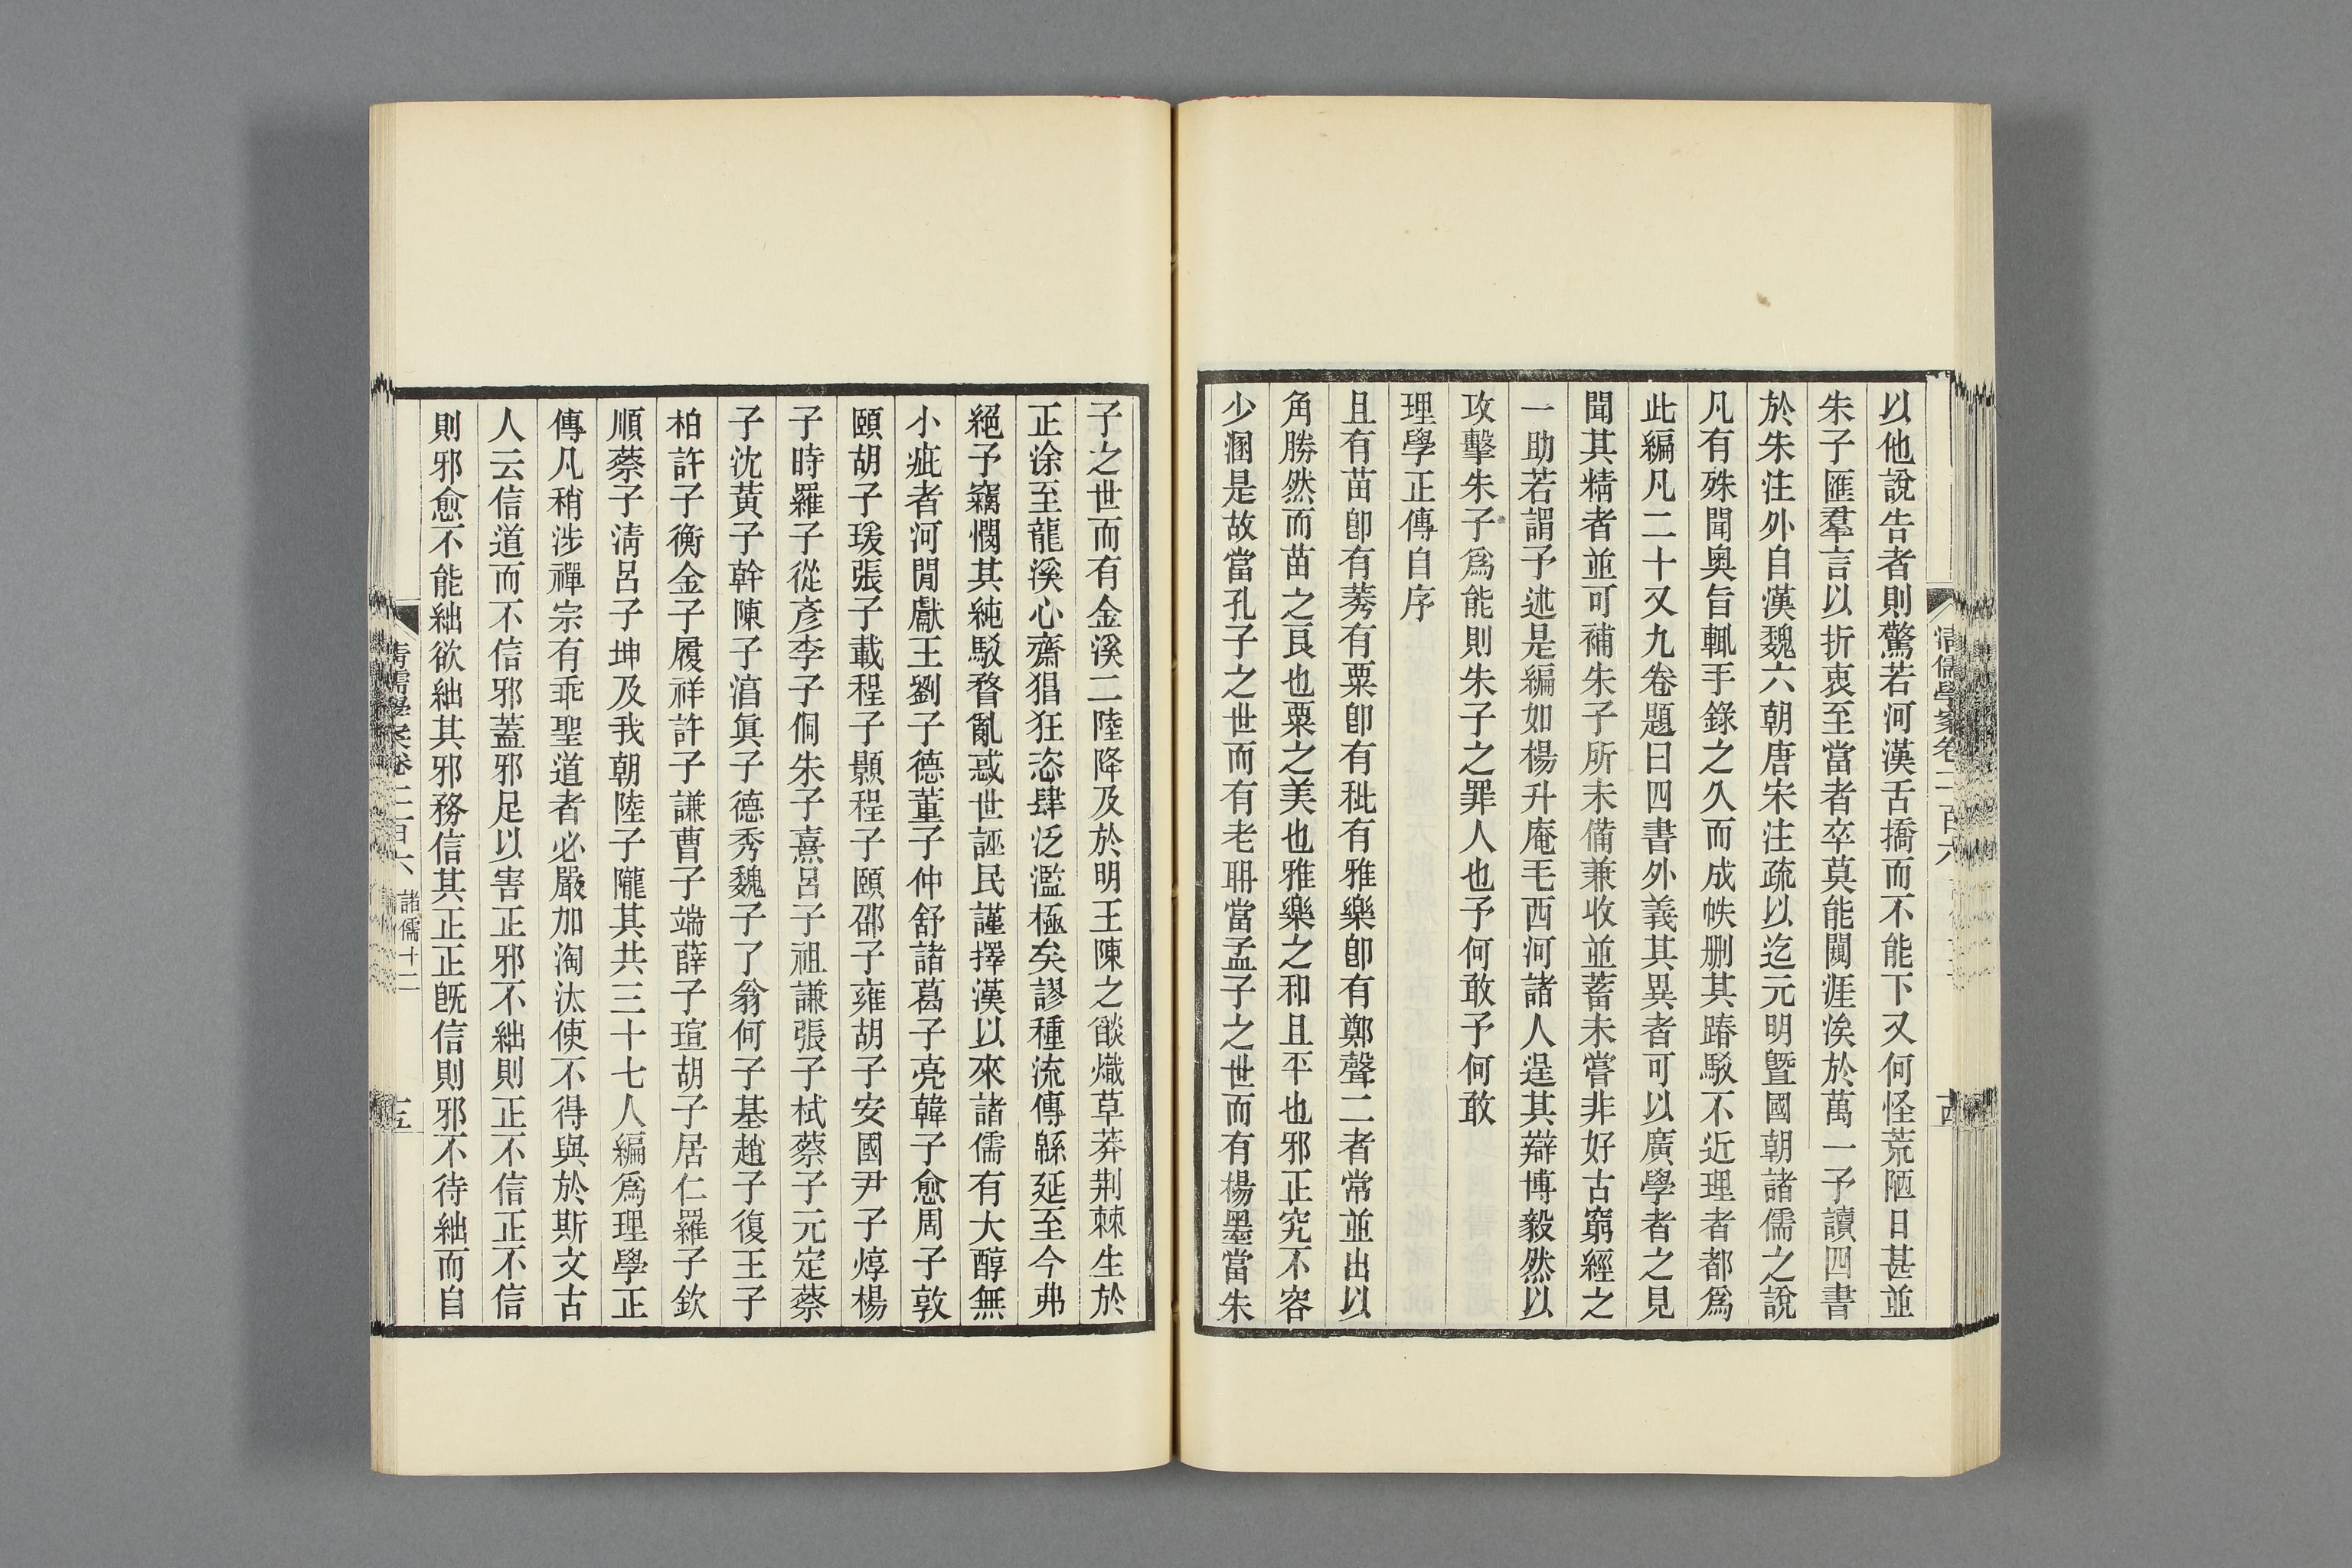 以他說告者則驚若河漢舌撟而不能下又何怪荒陋日甚並
朱子匯羣言以折衷至當者卒莫能闖涯涘於萬一予讀四書
於朱注外自漢魏六朝唐宋注疏以迄元明曁國朝諸儒之說
凡有殊聞奧旨輒手錄之久而成帙刪其踳駁不近理者都爲
此編凡二十又九卷題曰四書外義其異者可以廣學者之見
聞其精者並可補朱子所未備兼收並蓄未嘗非好古窮經之
一助若謂予述是編如楊升庵毛西河諸人逞其辯博毅然以
攻擊朱子爲能則朱子之罪人也予何敢予何敢
理學正傳自序
且有苗卽有莠有粟卽有秕有雅樂卽有鄭聲二者常並出以
角勝然而苗之良也粟之美也雅樂之和且平也邪正究不容
少溷是故當孔子之世而有老聃當孟子之世而有楊墨當朱
子之世而有金溪二陸降及於明王陳之燄熾草莽荆棘生於
正涂至龍溪心齋猖狂恣肆泛濫極矣謬種流傳緜延至今弗
絕予竊憫其純駁瞀亂惑世誣民謹擇漢以來諸儒有大醇無
小疵者河閒獻王劉子德董子仲舒諸葛子亮韓子愈周子敦
頤胡子瑗張子載程子顥程子頤邵子雍胡子安國尹子焞楊
子時羅子從彥李子侗朱子熹呂子祖謙張子栻蔡子元定蔡
子沈黃子幹陳子湻眞子德秀魏子了翁何子基趙子復王子
柏許子衡金子履祥許子謙曹子端薛子瑄胡子居仁羅子欽
順蔡子淸呂子坤及我朝陸子隴其共三十七人編爲理學正
傳凡稍涉禪宗有乖聖道者必嚴加淘汰使不得與於斯文古
人云信道而不信邪蓋邪足以害正邪不絀則正不信正不信
則邪愈不能絀欲絀其邪務信其正正旣信則邪不待絀而自
清儒學案卷二百六 諸儒十二
十五